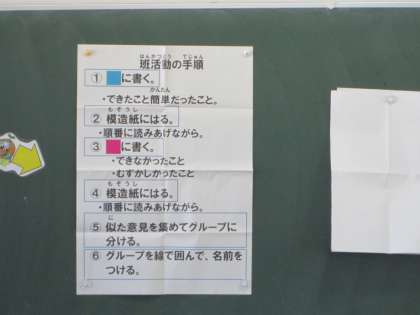 班活動の手順
①■に書く。
・できたこと簡単だったこと。
②模造紙にはる。
・順番に読みあげながら。
③■に書く。
・できなかったこと
・むずかしかったこと
④模造紙にはる。
・順番に読みあげながら。
⑤似た意見を集めてグループに
分ける。
⑥グループを線で囲んで、名前を
つける。